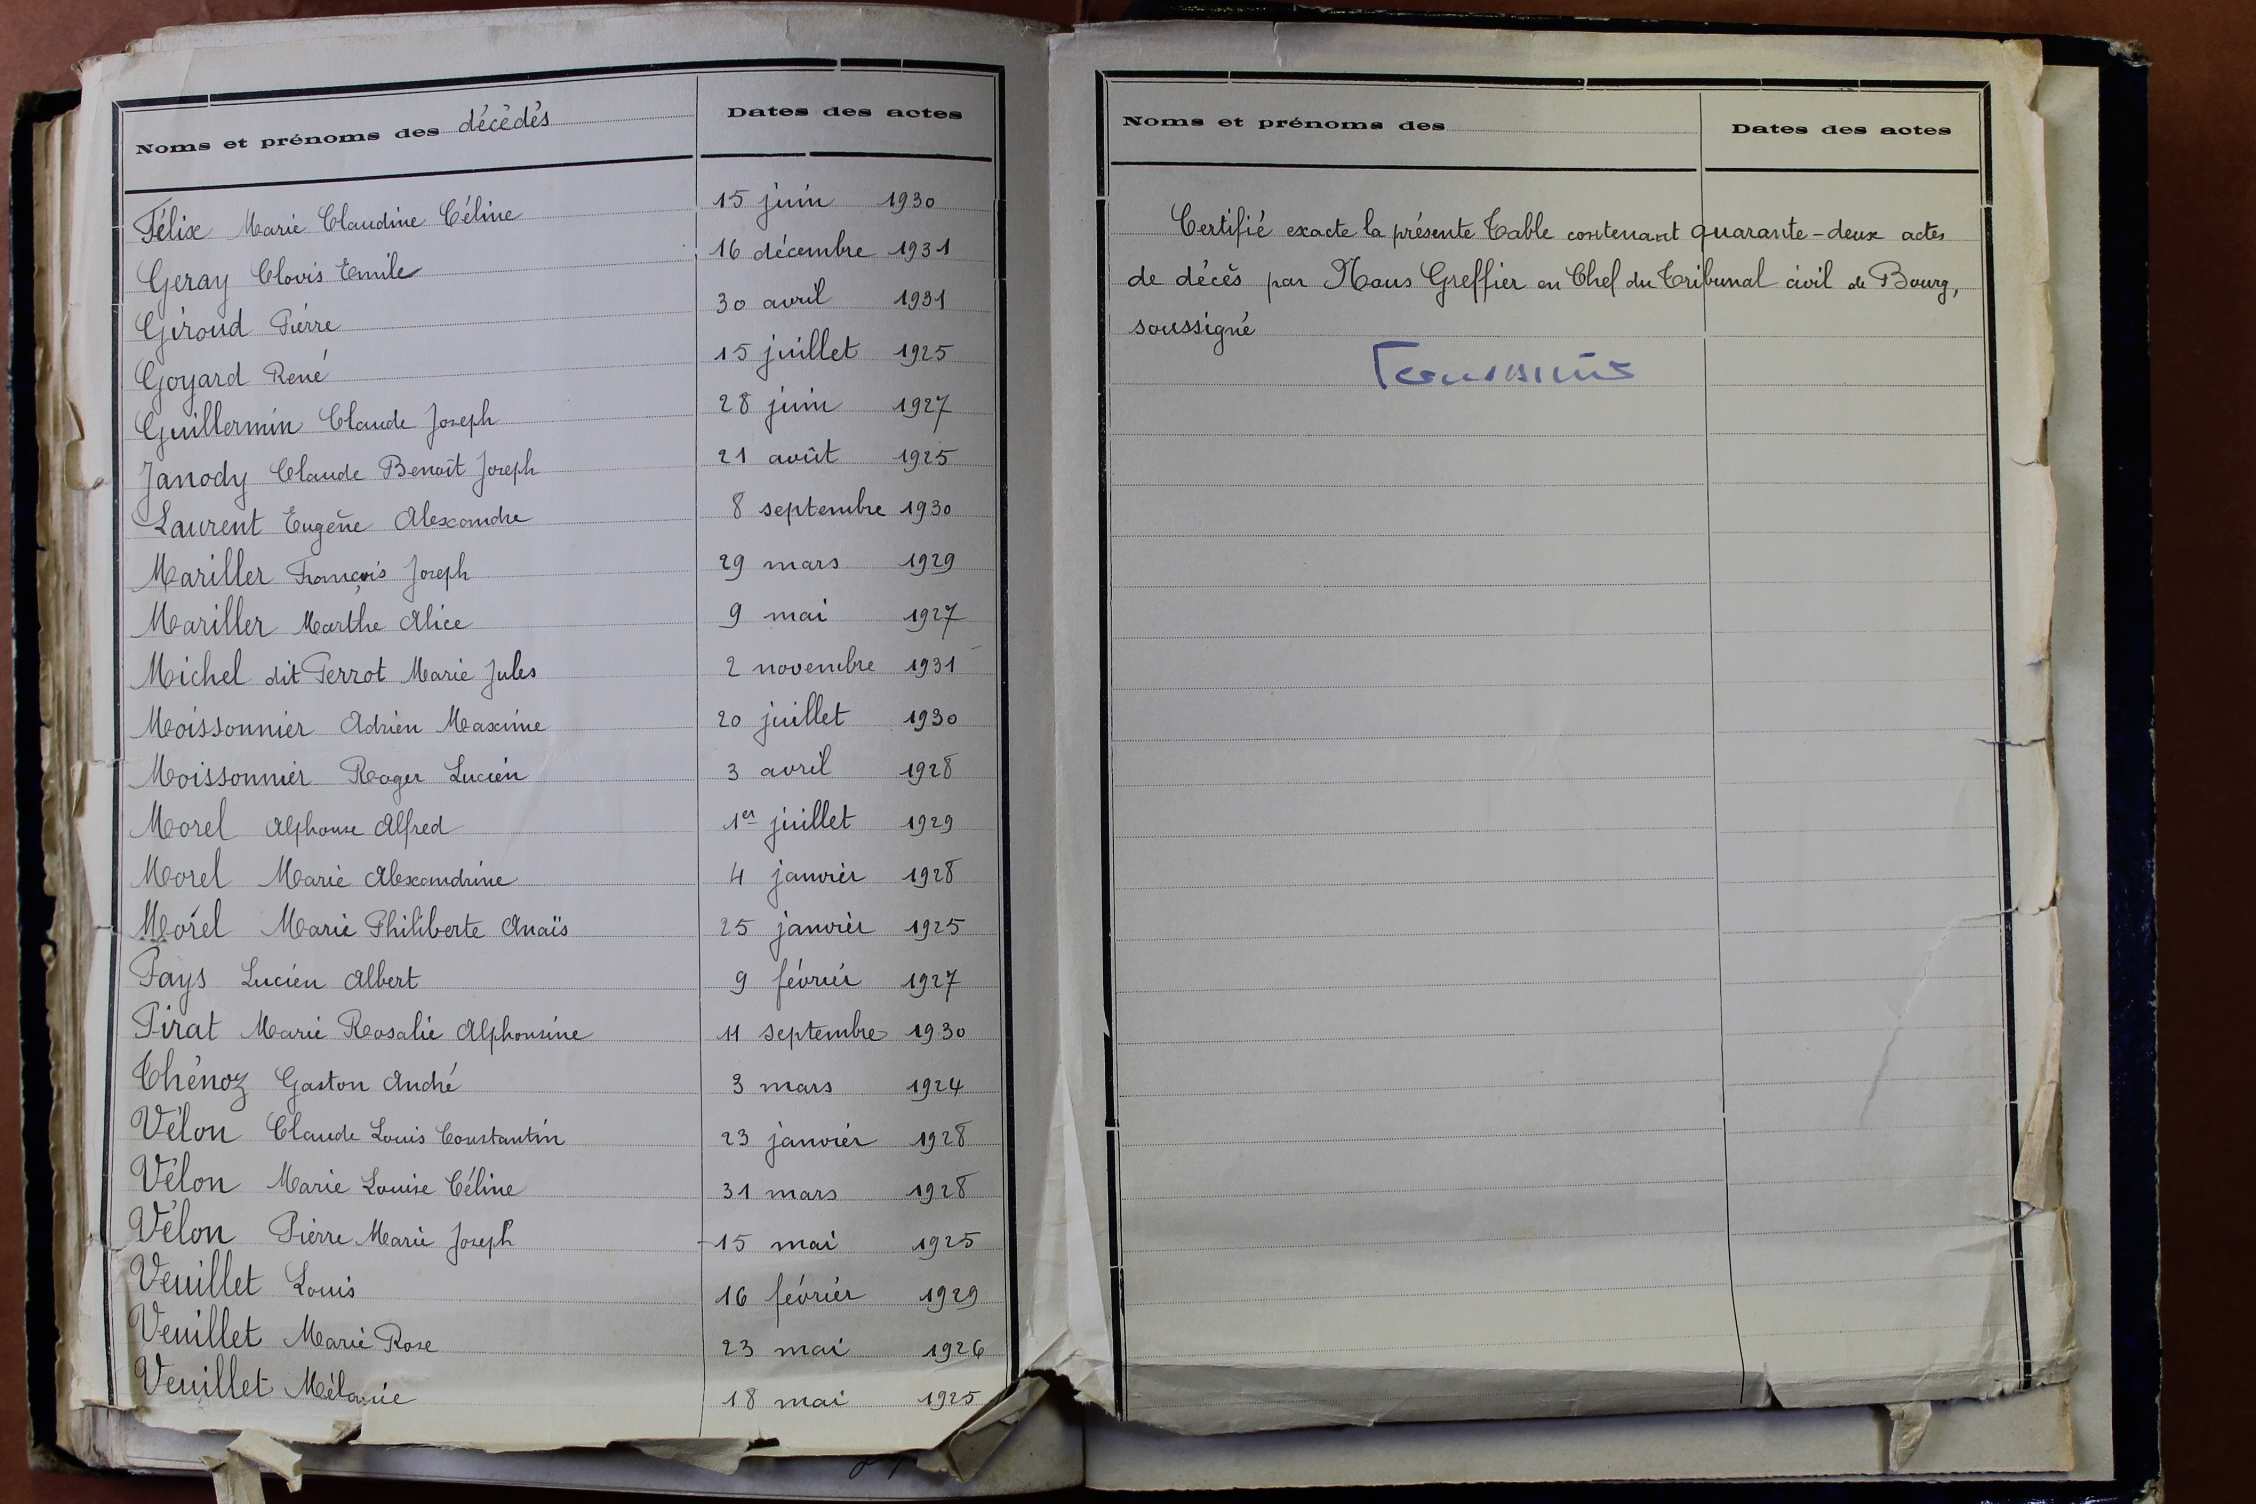 Noms et prénoms des décédés
Dates des actes
Félix Marie Claudine Céline 15 juin 1930
Geray Clovis Emile 16 décembre 1931
Giroud Pierre 30 avril 1931
Goyard René 15 juillet 1925
Guillermin Claude Joseph 28 juin 1927
Janody Claude Benoît Joseph 21 août 1925
Laurent Eugène Alexandre 8 septembre 1930
Mariller François Joseph 29 mars 1929
Mariller Marthe Alice 9 mai 1927
Michel dit Perrot Marie Jules 2 novembre 1931
Moissonnier Adrien Maxime 20 juillet 1930
Moissonnier Roger Lucien 3 avril 1928
Morel Alphonse Alfred 1er juillet 1929
Morel Marie Alexandrine 4 janvier 1928
Morel Marie Philiberte Anaïs 25 janvier 1925
Pays Lucien Albert 9 février 1927
Pirat Marie Rosalie Alphonsine 11 septembre 1930
Thénoz Gaston André 3 mars 1924
Vélon Claude Louis Constantin 23 janvier 1928
Vélon Marie Louise Céline 31 mars 1928
Vélon Pierre Marie Joseph 15 mai 1925
Veuillet Louis 16 février 1929
Veuillet Marie Rose 23 mai 1926
Veuillet Mélanie 18 mai 1925
Noms et prénoms des
Dates des actes
Certifié exacte la présente Table contenant quarante-deux actes
de décès par Nous Greffier en Chef du Tribunal civil de Bourg,
soussigné